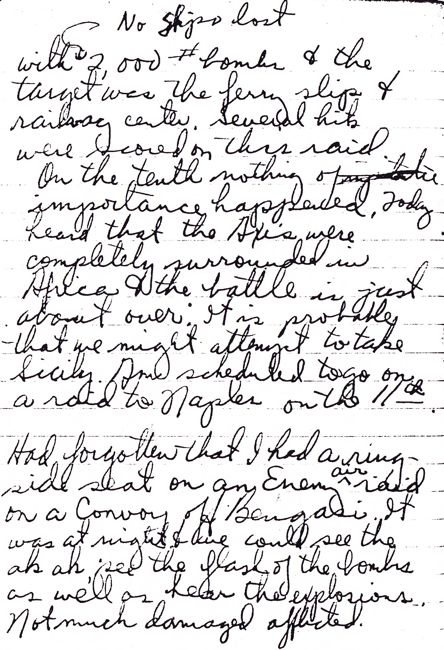 No ships lost
with 2,000 # bombs & the
target was the ferry slips &
railway center. Several hits
were scored on this raid
On the tenth nothing of
importance happened. Today
heard that the Axis were
completely surrounded in
Africa & the battle is just
about over. It is probably
that we might attempt to take
Sicily. Am scheduled to go on
a raid to Naples on the 11th
Had forgotten that I had a ring-
side seat on an Enemy air raid
on a Convoy off Bengasi. It
was at night & we could see the
ak ak, see the flash of the bombs
as well as hear the explosions.
Not much damaged afflicted.